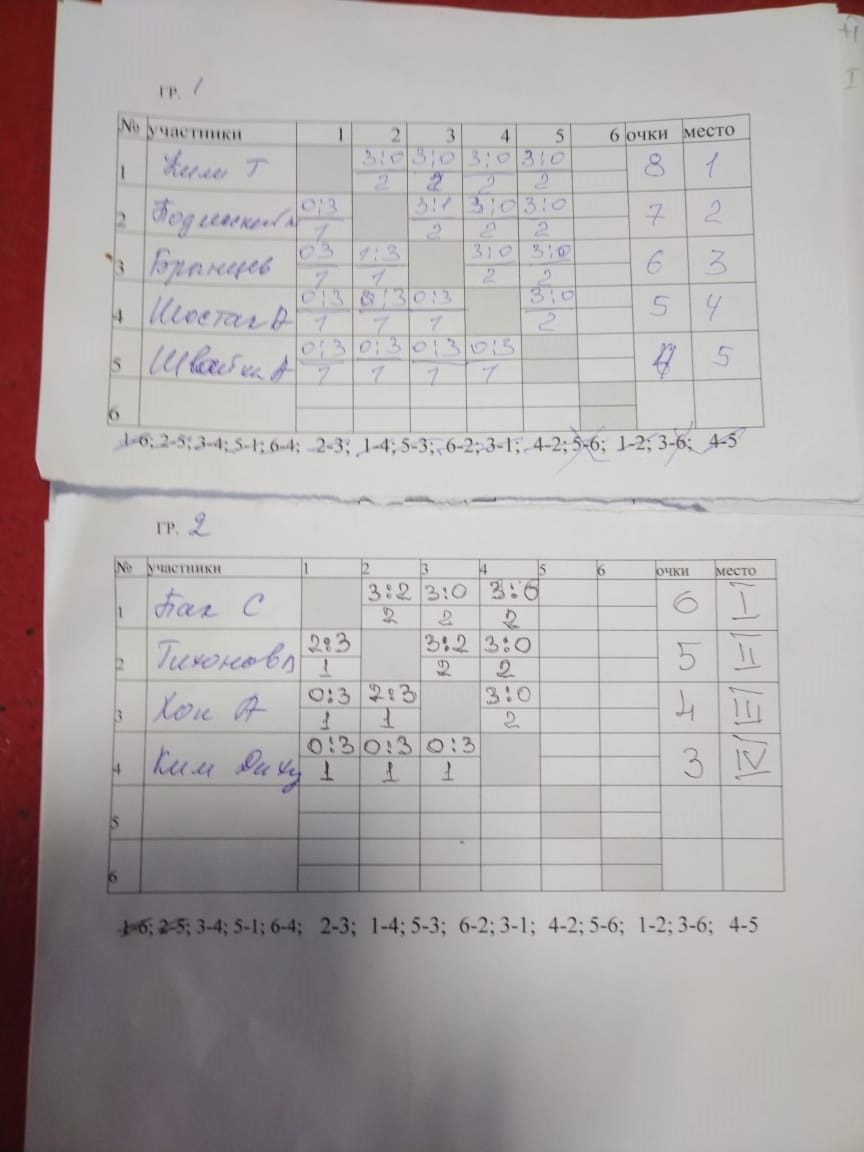 ГР. 1
№ участники 1 2 3 4 5 6 очки место
1 Ким Т 3:0 3:0 3:0 3:0 8 1
2 2 2 2
2 0:3 3:1 3:0 3:0 7 2
1 2 2 2
3 Бранцев 0:3 1:3 3:0 3:0 6 3
1 1 2 2
4 Шостак А 0:3 0:3 0:3 3:0 5 4
1 1 1 2
5 Швайка А 0:3 0:3 0:3 0:3 4 5
1 1 1 1
6
1-6; 2-5; 3-4; 5-1; 6-4; 2-3; 1-4; 5-3; 6-2; 3-1; 4-2; 5-6; 1-2; 3-6; 4-5
ГР. 2
№ участники 1 2 3 4 5 6 очки место
1 Пак С 3:2 3:0 3:0 6 I
2 2 2
2 Тихонов А 2:3 3:2 3:0 5 II
1 2 2
3 Хон А 0:3 2:3 3:0 4 III
1 1 2
4 Ким 0:3 0:3 0:3 3 IV
1 1 1
5
6
1-6; 2-5; 3-4; 5-1; 6-4; 2-3; 1-4; 5-3; 6-2; 3-1; 4-2; 5-6; 1-2; 3-6; 4-5